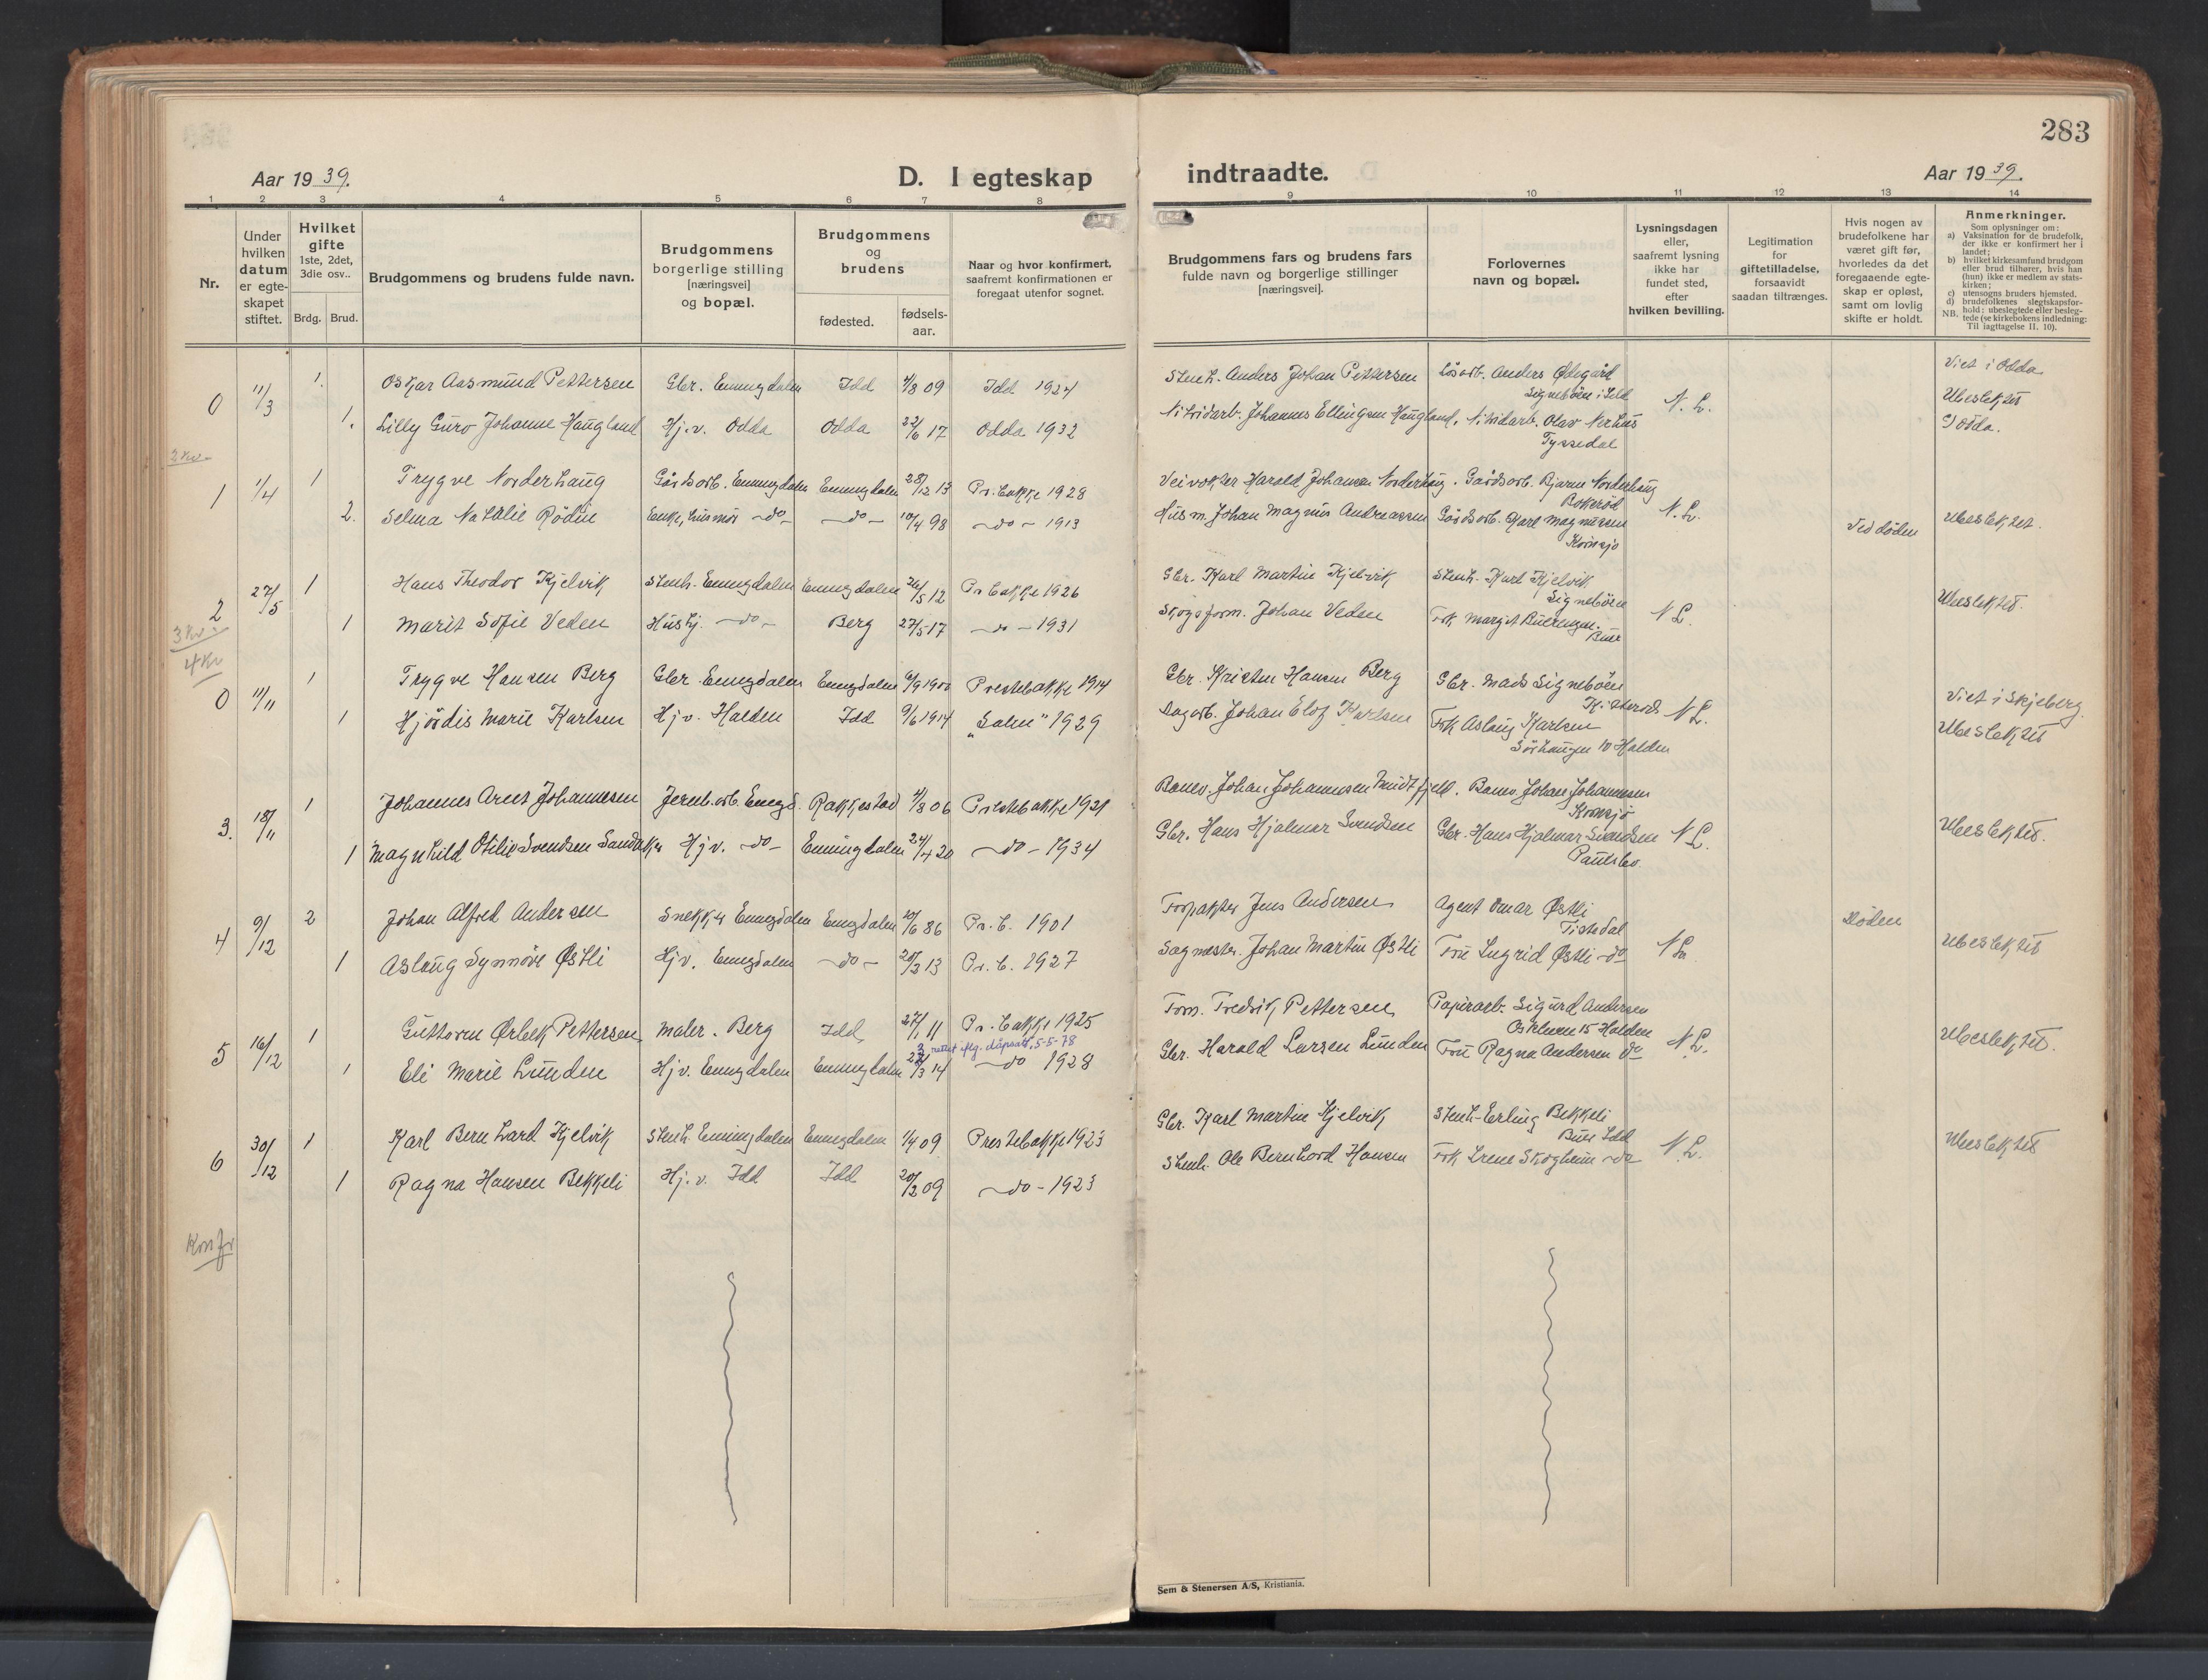 283
Aar 19 39.
D. I egteskap
indtraadte.
Aar 19 39.
1 2 3 4 5 6 7 8 9 10 11 12 13 14
Nr.
Under hvilken datum er egte-skapet stiftet.
Hvilket gifte 1ste, 2det, 3die osv..
Brdg. Brud.
Brudgommens og brudens fulde navn.
Brudgommens borgerlige stilling [næringsvei] og bopæl.
Brudgommens og brudens
fødested.
fødsels-aar.
Naar og hvor konfirmert, saafremt konfirmationen er foregaat utenfor sognet.
Brudgommens fars og brudens fars fulde navn og borgerlige stillinger [næringsvei].
Forlovernes navn og bopæl.
Lysningsdagen eller, saafremt lysning ikke har fundet sted, efter hvilken bevilling.
Legitimation for giftetilladelse, forsaavidt saadan tiltrænges.
Hvis nogen av brudefolkene har været gift før, hvorledes da det foregaaende egte-skap er opløst, samt om lovlig skifte er holdt.
Anmerkninger.
Som oplysninger om:
a) Vaksination for de brudefolk, der ikke er konfirmert her i landet;
b) hvilket kirkesamfund brudgom eller brud tilhører, hvis han (hun) ikke er medlem av stats-kirken;
c) utensogns bruders hjemsted.
d) brudefolkenes slegtskapsfor-hold: ubeslegtede eller besleg-tede (se kirkebokens indledning: Til iagttagelse II. 10).
NB.
0 11/3 1. Oskar Aasmund Pettersen Gbr. Enningdalen Idd 4/8 09 Idd 1924 Stenh. Anders Johan Pettersen Løsarb. Anders Ødegård Signebøen i Idd N. L. Viet i Odda Ubeslektet
1. Lilly Guro Johanne Haugland Hj.v. Odda Odda 22/6 17 Odda 1932 Nitridarb. Johannes Ellingsen Haugland. Nitridarb. Olav Nerhus Tyssedal I Odda.
2 kv.
1 1/4 1 Trygve Norderhaug Gårdsarb. Enningdalen Enningdalen 28/12 13 Pr. bakke 1928 Veivokter Harald Johansen Norderhaug. Gårdsarb. Bjarne Norderhaug Bokerød N. L.
2. Selma Nathalie Rödin Enke, husmor -do- -do- 10/4 98 -do- 1913 Husm. Johan Magnus Andreassen Gårdsarb. Karl Magnussen Kornsjø Ved døden Ubeslektet.
2 27/5 1 Hans Theodor Kjelvik Stenh. Enningdalen Enningdalen 26/5 12 Pr. bakke 1926 Gbr. Karl Martin Kjelvik Stenh. Karl Kjelvik Signebøen N L. Ubeslektet.
1 Marit Sofie Veden Hushj. -do- Berg 27/5 17 -do- 1931 Skogsform. Johan Veden Frk Margit Buerengen. Buer
3 kv.
4 kv
0 11/11 1 Trygve Hansen Berg Gbr. Enningdalen Enngdalen 9/9 1900 Prestebakke 1914 Gbr. Kristen Hansen Berg Gbr. Mads Signebøen N L. Viet i Skjeberg.
1 Hjördis Marie Karlsen Hj v. Halden Idd 9/6 1914 "Salen" 1929 Sagarb. Johan Elof Karlsen Frk Aslaug Karlsen Sørhaugen 10 Halden Ubeslektet
3. 18/11 1 Johannes Arnt Johannesen Jernb. arb. Enngd. Rakkestad 4/8 06 Prestebakke 1921 Banev. Johan Johannesen Midtfjeld. Banev. Johan Johannesen Kornsjø
1 Magnhild Otilie Svendsen Sandaker Hj v. -do- Enningdalen 24/4 20 -do- 1934 Gbr. Hans Hjalmar Svendsen Gbr. Hans Hjalmar Svendsen Paulsbo. N L. Ubeslektet.
4 9/12 2 Johan Alfred Andersen Snekker Enngdalen Enngdalen 20/6 86 Pr. b. 1901 Forpakter Jens Andersen Agent Omar Østli Tistedal Døden
1 Aslaug Synnöve Østli Hj v. Enngdalen -do- 20/2 13 Pr. b. 1927 Sagmester. Johan Martin Østli Fru Ingrid Østli -do- N L. Ubeslektet
5 16/12 1 Guttorm Ørbek Pettersen Maler. Berg Idd 27/1 11 Pr. bakke 1925 Form. Fredrik Pettersen Papirarb. Sigurd Andersen Oskleven 15 Halden N L. Ubeslektet.
rettet iflg. dåpsatt. 5-5-78
1 Eli Marie Lunden Hj v. Enngdalen Enningdalen /3 14 -do 1928 Gbr. Harald Larsen Lunden Fru Ragna Andersen do
6 30/12 1 Karl Bernhard Kjelvik Stenh. Enningdalen Enngdalen 1/4 09 Prestebakke 1923 Gbr. Karl Martin Kjelvik Stenh. Erling Bekkeli Buer Idd N. L. Ubeslektet
1 Ragna Hansen Bekkeli Hj. v. Idd Idd 20/2 09 -do- 1923 Stenh. Ole Bernhard Hansen Frk Irene Skogheim -do
Konfr
Sem & Stenersen A/S, Kristiania.